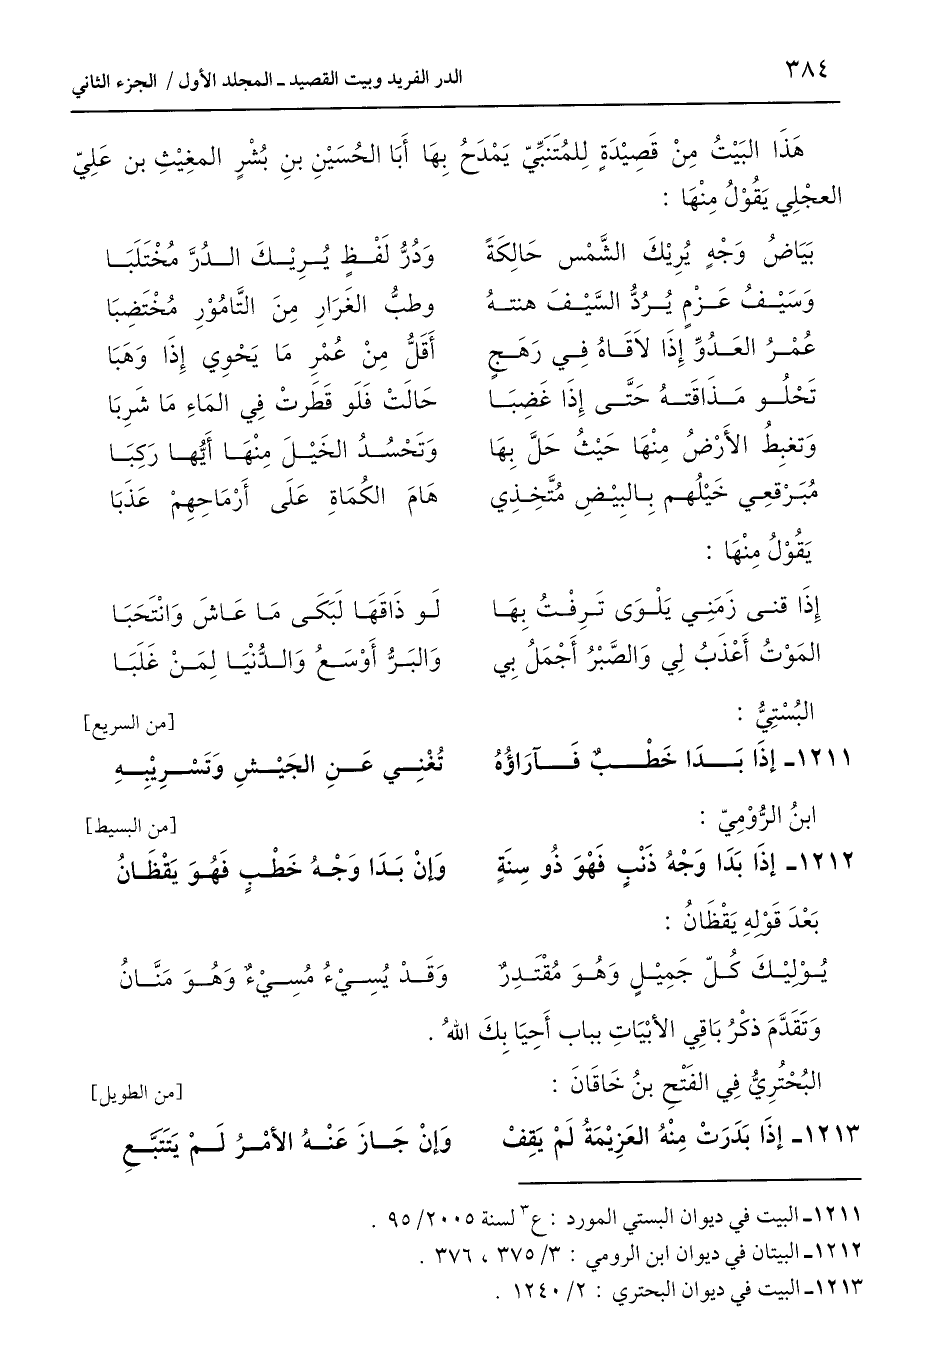 ٣٨٤ الدر الفريد وبيت القصيد ـ المجلد الأول / الجزء الثاني
هَذَا البَيْتُ مِنْ قَصِيْدَةٍ لِلمُتَنَبِّيّ يَمْدَحُ بِهَا أَبَا الحُسَيْنِ بنِ بُشْرٍ المغِيْثِ بن عَلِيّ
العجْلِي يَقُوْلُ مِنْهَا :
بَيَاضُ وَجْهٍ يُرِيْكَ الشَّمْس حَالِكَةً وَدُرُّ لَفْظٍ يُرِيْكَ الدُرَّ مخْتَلَبَا
وَسَيْفُ عَزْمٍ يُرُدُّ السَّيْفَ هنتهُ وطبُّ الغَرَارِ مِنَ التَّامُوْرِ مُخْتَضِبَا
عُمْرُ العَدُوِّ إِذَا لاَقَاهُ فِي رَهَجٍ أَقَلُّ مِنْ عُمْرِ مَا يَحْوِي إِذَا وَهَبَا
تَحْلُو مَذَاقَتهُ حَتَّى إِذَا غَضِبَا حَالَتْ فَلَو قَطَرتْ فِي المَاءِ مَا شَرِبَا
وَتغبِطُ الأَرْضُ مِنْهَا حَيْثُ حَلَّ بِهَا وَتَحْسُدُ الخَيْلَ مِنْهَا أَيُّهَا رَكِبَا
مُبَرْقعِي خَيْلُهم بِالبِيْضِ مُتَّخِذِي هَامَ الكُمَاةِ عَلَى أَرْمَاحِهِمْ عَذَبَا
يَقُوْلُ مِنْهَا :
إِذَا قنى زَمَنِي يَلْوَى تَرِفْتُ بِهَا لَو ذَاقَهَا لَبَكَى مَا عَاشَ وَانْتَحَبَا
المَوْتُ أَعْذَبُ لِي وَالصَّبْرُ أَجْمَلُ بِي وَالبَرُّ أَوْسَعُ وَالدُّنْيَا لِمَنْ غَلَبَا
البُسْتِيُّ : [من السريع]
١٢١١ـ إِذَا بَدَا خَطْبٌ فَآرَاؤُهُ تُغْنِي عَنِ الجَيْشِ وَتَسْرِيْبِهِ
ابنُ الرُّوْمِيّ : [من البسيط]
١٢١٢ـ إِذَا بَدَا وَجْهُ ذَنْبٍ فَهْوَ ذُو سِنَةٍ وَإنْ بَدَا وَجْهُ خَطْبٍ فَهُوَ يَقْظَانُ
بَعْدَ قَوْلِهِ يَقْظَانُ :
يُوْلِيْكَ كُلّ جَمِيْلٍ وَهُوَ مُقْتَدِرٌ وَقَدْ يُسِيْءُ مُسِيْءٌ وَهُوَ مَنَّانُ
وَتَقَدَّمَ ذكْرُ بَاقِي الأَبْيَاتِ بباب أَحِيَا بِكَ اللهُ .
البُحْتِرِيُّ فِي الفَتْحِ بنُ خَاقَانَ : [من الطويل]
١٢١٣ـ إِذَا بَدَرَتْ مِنْهُ العَزِيْمَةُ لَمْ يَقِفْ وَإنْ جَازَ عَنْهُ الأمْرُ لَمْ يَتَتَبَّعِ
١٢١١ـ البيت في ديوان البستي المورد : ع٣ لسنة ٢٠٠٥/ ٩٥ .
١٢١٢ـ البيتان في ديوان ابن الرومي : ٣/ ٣٧٥ ، ٣٧٦ .
١٢١٣ـ البيت في ديوان البحتري : ٢/ ١٢٤٠ .